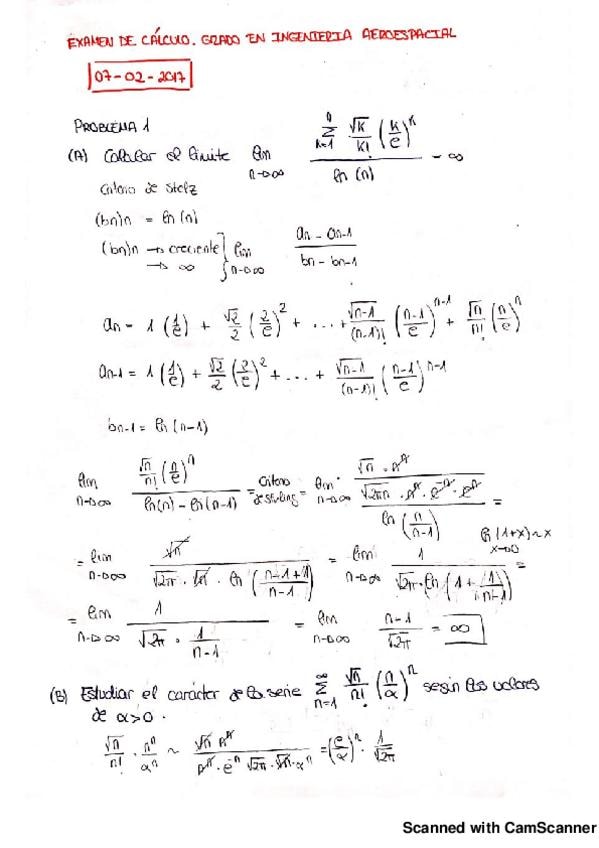 EXAMEN DE CÁLCULO. GRADO EN INGENIERIA AEROESPACIAL
07-02-2017
PROBLEMA 1
(A) Calcular el límite lim n→∞ (∑ k=1 n √k/k! (k/e)^k) / ln(n) = ∞
Criterio de Stolz
(bn)n = ln(n)
(bn)n → creciente → ∞ } lim n→∞ (an - an-1)/(bn - bn-1)
an = 1 (1/e) + √2/2 (2/e)^2 + ... + √n-1/(n-1)! (n-1/e)^n-1 + √n/n! (n/e)^n
an-1 = 1 (1/e) + √2/2 (2/e)^2 + ... + √n-1/(n-1)! (n-1/e)^n-1
bn-1 = ln (n-1)
lim n→∞ (√n/n! (n/e)^n) / (ln(n) - ln(n-1)) = Criterio de Stirling = lim n→∞ (√n · n^n / (√2πn · n^n · e^-n · e^n)) / ln(n/n-1) =
= lim n→∞ √n / (√2π · √n · ln(n-1+1/n-1)) = lim n→∞ 1 / (√2π · ln(1 + 1/n-1)) = ln(1+x)~x x→0
= lim n→∞ 1 / (√2π · 1/n-1) = lim n→∞ n-1/√2π = ∞
(B) Estudiar el carácter de la serie ∑ n=1 ∞ √n/n! (n/α)^n según los valores
de α>0.
√n/n! · n^n/α^n ~ √n n^n / (n^n · e^-n √2π · √n · α^n) = (e/α)^n · 1/√2π
Scanned with CamScanner